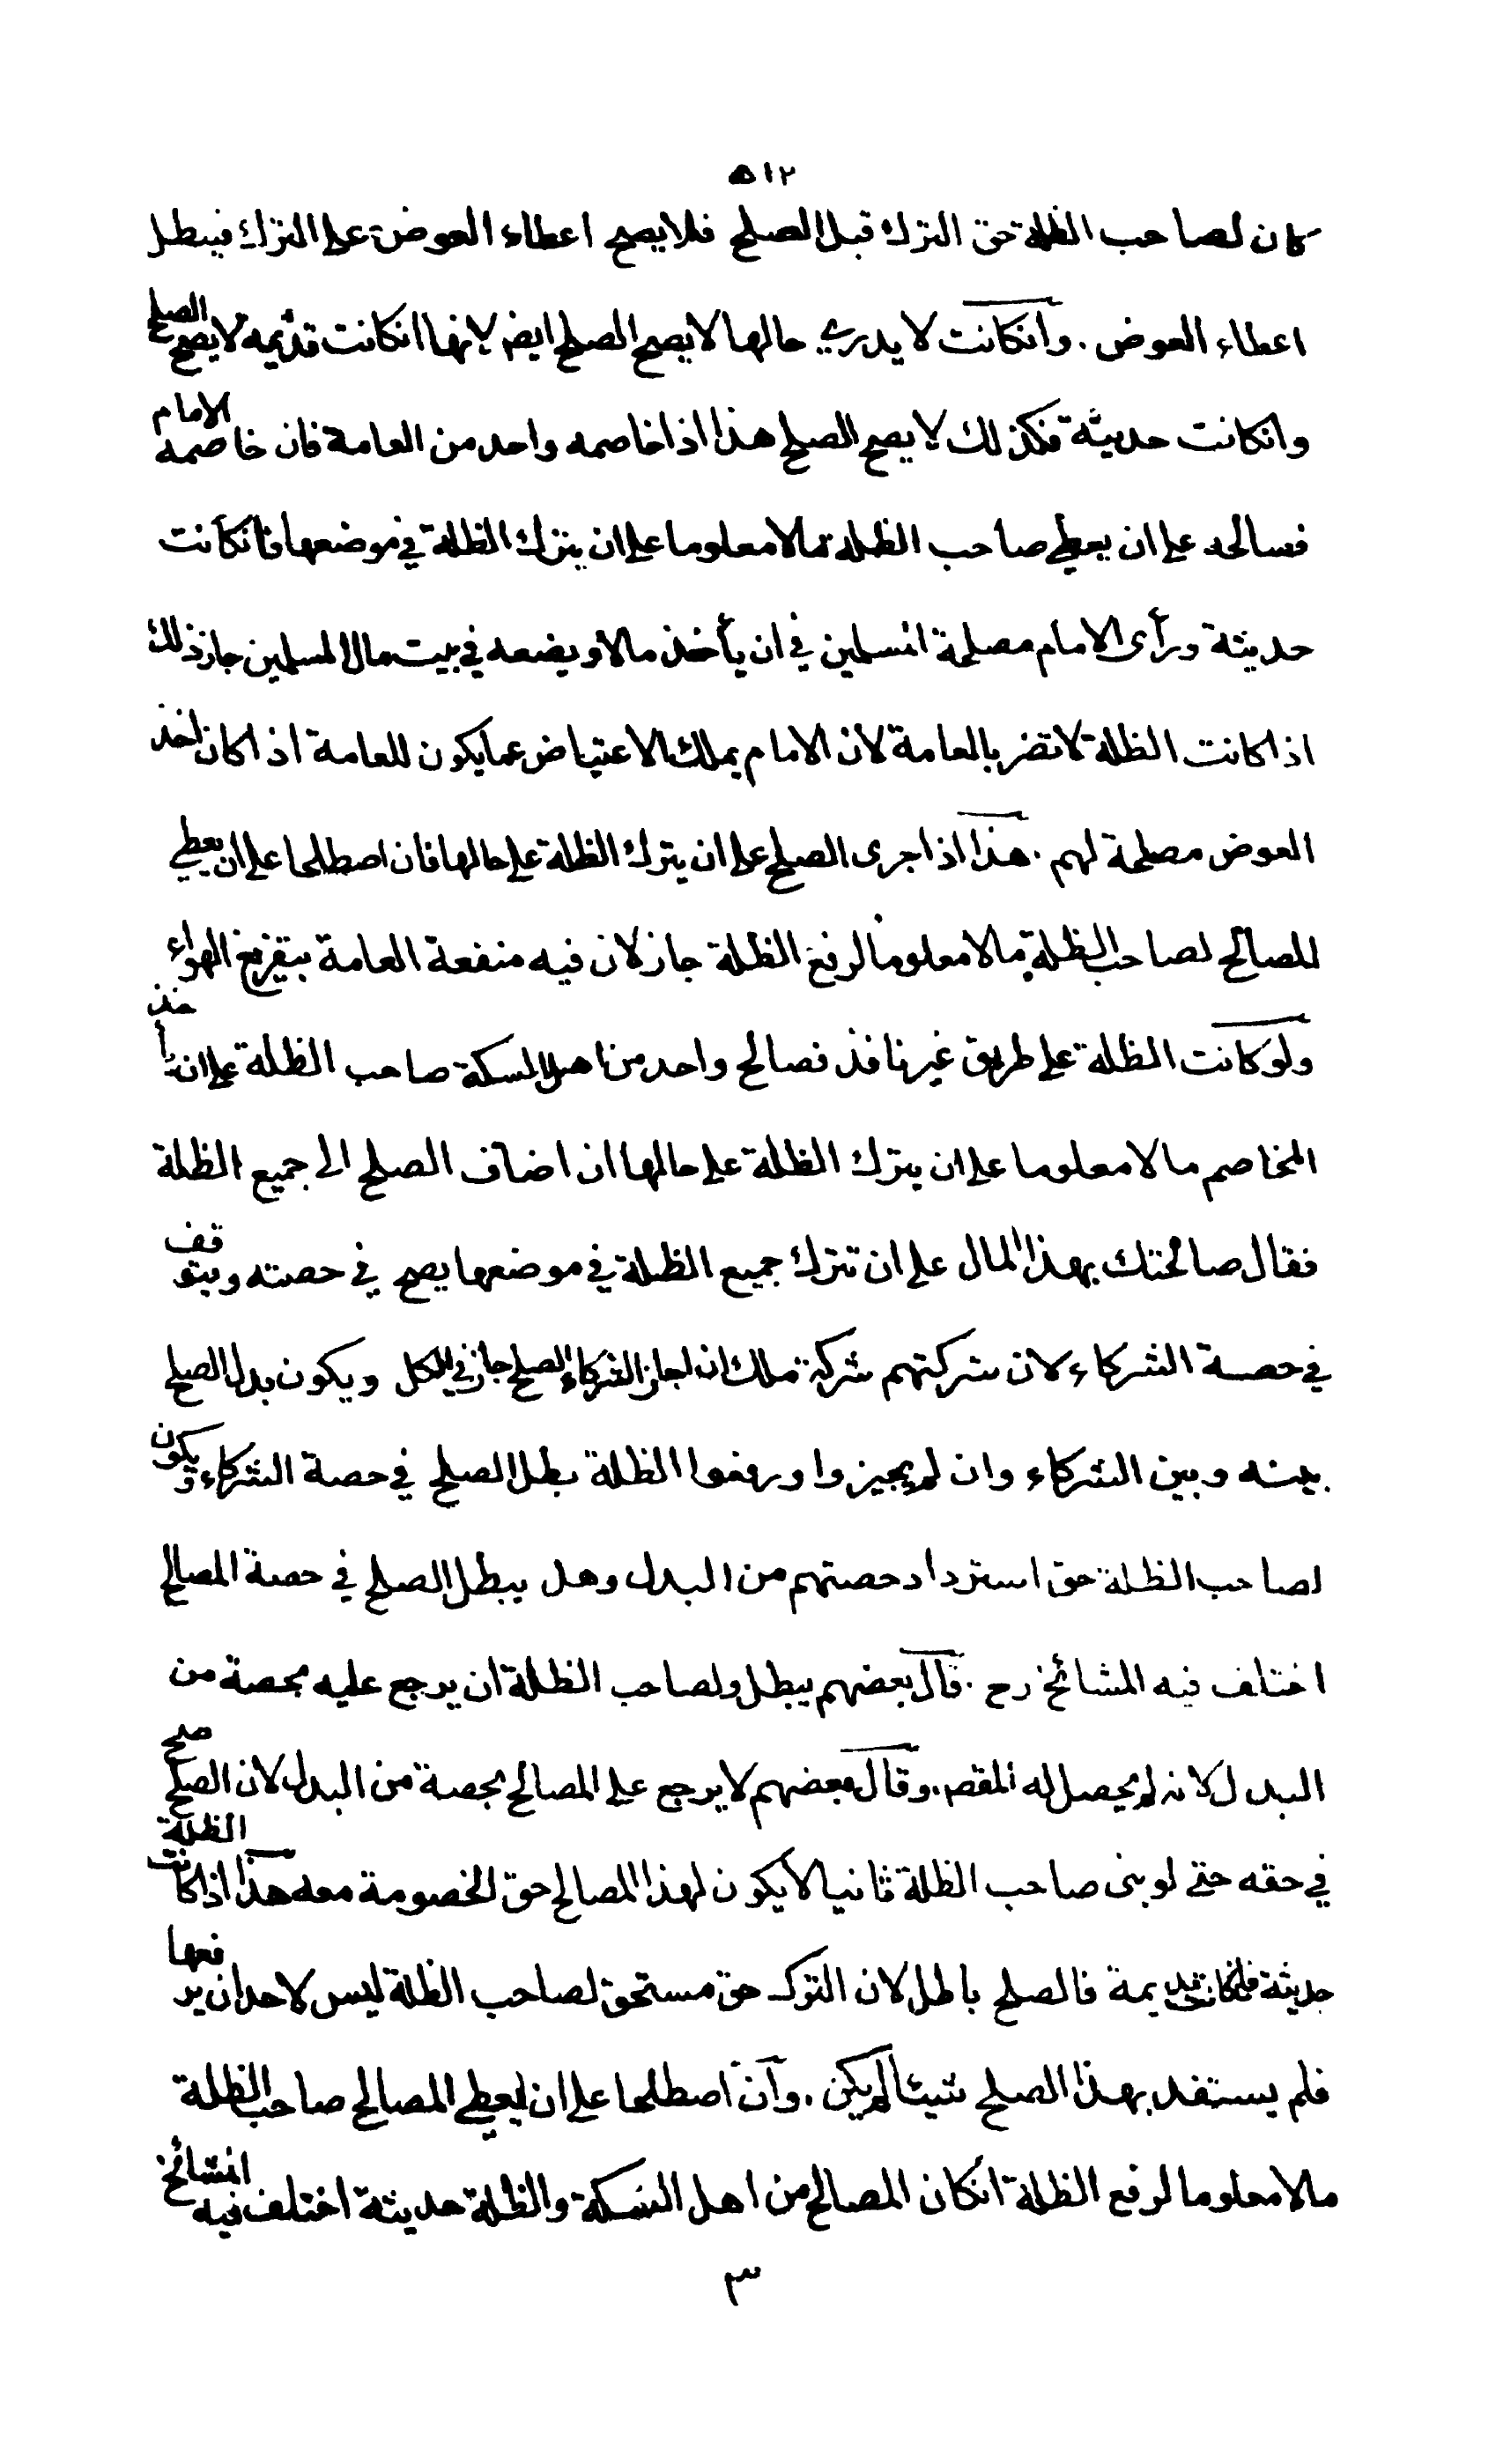 ٥١٢
كان لصاحب الظلة حق الترك قبل الصلح فلا يصح اعطاء العوض على الترك فيبطل
اعطاء العوض . وانكانت لا يدري حالها لا يصح الصلح ايض لانها انكانت قديمة لا يصح الصلح
وانكانت حديثة فكذلك لا يصح الصلح هذا اذا خاصمه واحد من العامة فان خاصمه الامام
فصالحه على ان يعطي صاحب الظلة مالا معلوما على ان يترك الظلة في موضعها فانكانت
حديثة ورأى الامام مصلحة المسلمين في ان يأخذ مالا ويضعه في بيت مال المسلمين جاز ذلك
اذا كانت الظلة لا تضر بالعامة لان الامام يملك الاعتياض عما يكون للعامة اذا كان اخذ
العوض مصلحة لهم . هذا اذا جرى الصلح على ان يترك الظلة على حالها فان اصطلحا على ان يعطي
المصالح لصاحب الظلة مالا معلوما لرفع الظلة جاز لان فيه منفعة العامة بتفريغ الهواء
ولو كانت الظلة على طريق غير نافذ فصالح واحد من اهل السكة صاحب الظلة على ان يأخذ
المخاصم مالا معلوما على ان يترك الظلة على حالها ان اضاف الصلح الى جميع الظلة
فقال صالحتك بهذا المال على ان تترك جميع الظلة في موضعها يصح في حصته ويتوقف
في حصة الشركاء لان شركتهم شركة ملك ان اجاز الشركاء الصلح جاز في الكل ويكون بدل الصلح
بينه وبين الشركاء وان لم يجيزوا ورفعوا الظلة بطل الصلح في حصة الشركاء ويكون
لصاحب الظلة حق استرداد حصتهم من البدل وهل يبطل الصلح في حصة المصالح
اختلف فيه المشائخ رح . قال بعضهم يبطل ولصاحب الظلة ان يرجع عليه بحصة من
البدل لانه لم يحصل له المقص . وقال بعضهم لا يرجع على المصالح بحصة من البدل لان الصلح صح
في حقه حتى لو بنى صاحب الظلة ثانيا لا يكون لهذا المصالح حق الخصومة معه هذا اذا كانت الظلة
حديثة فانكانت قديمة فالصلح باطل لان الترك حق مستحق لصاحب الظلة ليس لاحد ان يرفعها
فلم يستفد بهذا الصلح شيئا لم يكن . وان اصطلحا على ان يعطي المصالح صاحب الظلة
مالا معلوما لرفع الظلة انكان المصالح من اهل السكة والظلة حديثة اختلف فيه المشائخ
٣